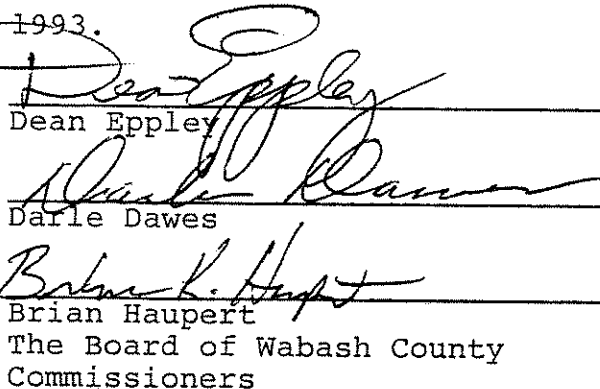 1993.
Dean Eppley
Dean Eppley
Darle Dawes
Darle Dawes
Brian K. Haupert
Brian Haupert
The Board of Wabash County
Commissioners